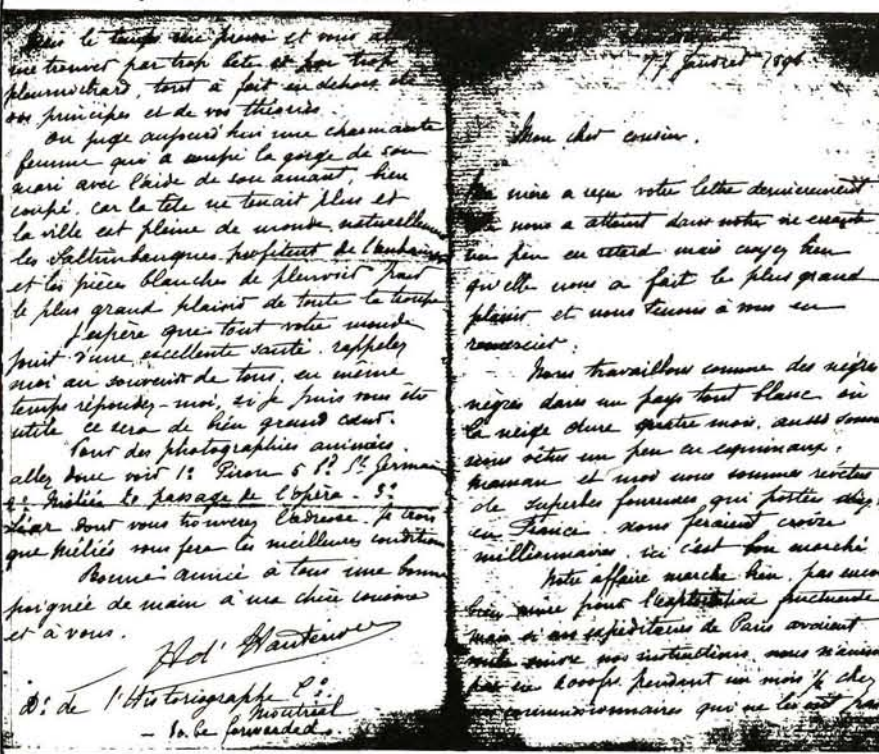 Mais le temps me presse et vous al
me trouver par trop bête et par trop
pleurnichard, tout à fait en dehors de
vos principes et de vos théories.
On juge aujourd'hui une charmante
femme qui a coupé la gorge de son
mari avec l'aide de son amant, bien
coupé, car la tête ne tenait plus et
la ville est pleine de monde, naturellem
les Saltimbanques profitent de l'aubaine
et les pièces blanches de pleuvoir pour
le plus grand plaisir de toute la troupe
J'espère que tout votre monde
jouit d'une excellente santé. rappelez
moi au souvenir de tous, en même
temps répondez-moi, si je puis vous être
utile ce sera de bien grand cœur.
Pour des photographies animées
allez donc voir 1º Pirou 5 Bd St Germain
2º Méliès passage de l'opéra - 3º
Lear dont vous trouverez l'adresse. Je crois
que Méliès vous fera les meilleures condition
Bonne année à tous une bonne
poignée de main à ma chère cousine
et à vous.
H d' Hauterives
Dr de l'Historiographe Cº
Montréal
- To be forwarded.
Janvier 1898
Mon cher cousin.
Ma mère a reçu votre lettre dernièrement
Elle nous a atteint dans notre vie errante
un peu en retard mais croyez bien
qu'elle nous a fait le plus grand
plaisir et nous tenons à vous en
remercier.
Nous travaillons comme des nègres
nègres dans un pays tout blanc où
la neige dure quatre mois, aussi somm
nous vêtus un peu en esquimaux.
Maman et moi nous sommes revêtus
de superbes fourrures qui portées
en France nous feraient croire
millionnaires. ici c'est bon marché
Notre affaire marche bien, pas encore
bien mûre pour l'exploitation fructueuse
mais si nos expéditeurs de Paris avaient
suivre nos instructions nous n'aurions
pas eu 6000frs. pendant un mois ½ chez
commissionnaires qui ne les ont pas